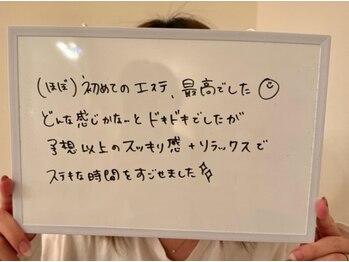 (ほぼ)初めてのエステ、最高でした☺
どんな感じかなーとドキドキでしたが
予想以上のスッキリ感+リラックスで
ステキな時間をすごせました✨